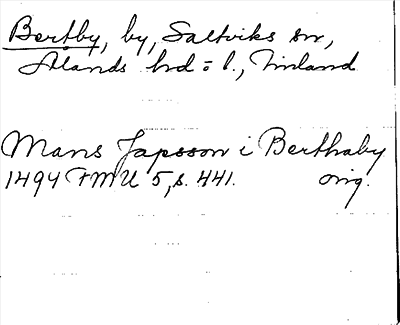 Bertby, by, Saltviks sn,
Ålands hd o l., Finland
Mans Japsson i Berthaby
1494 FMU 5, s. 441. orig.